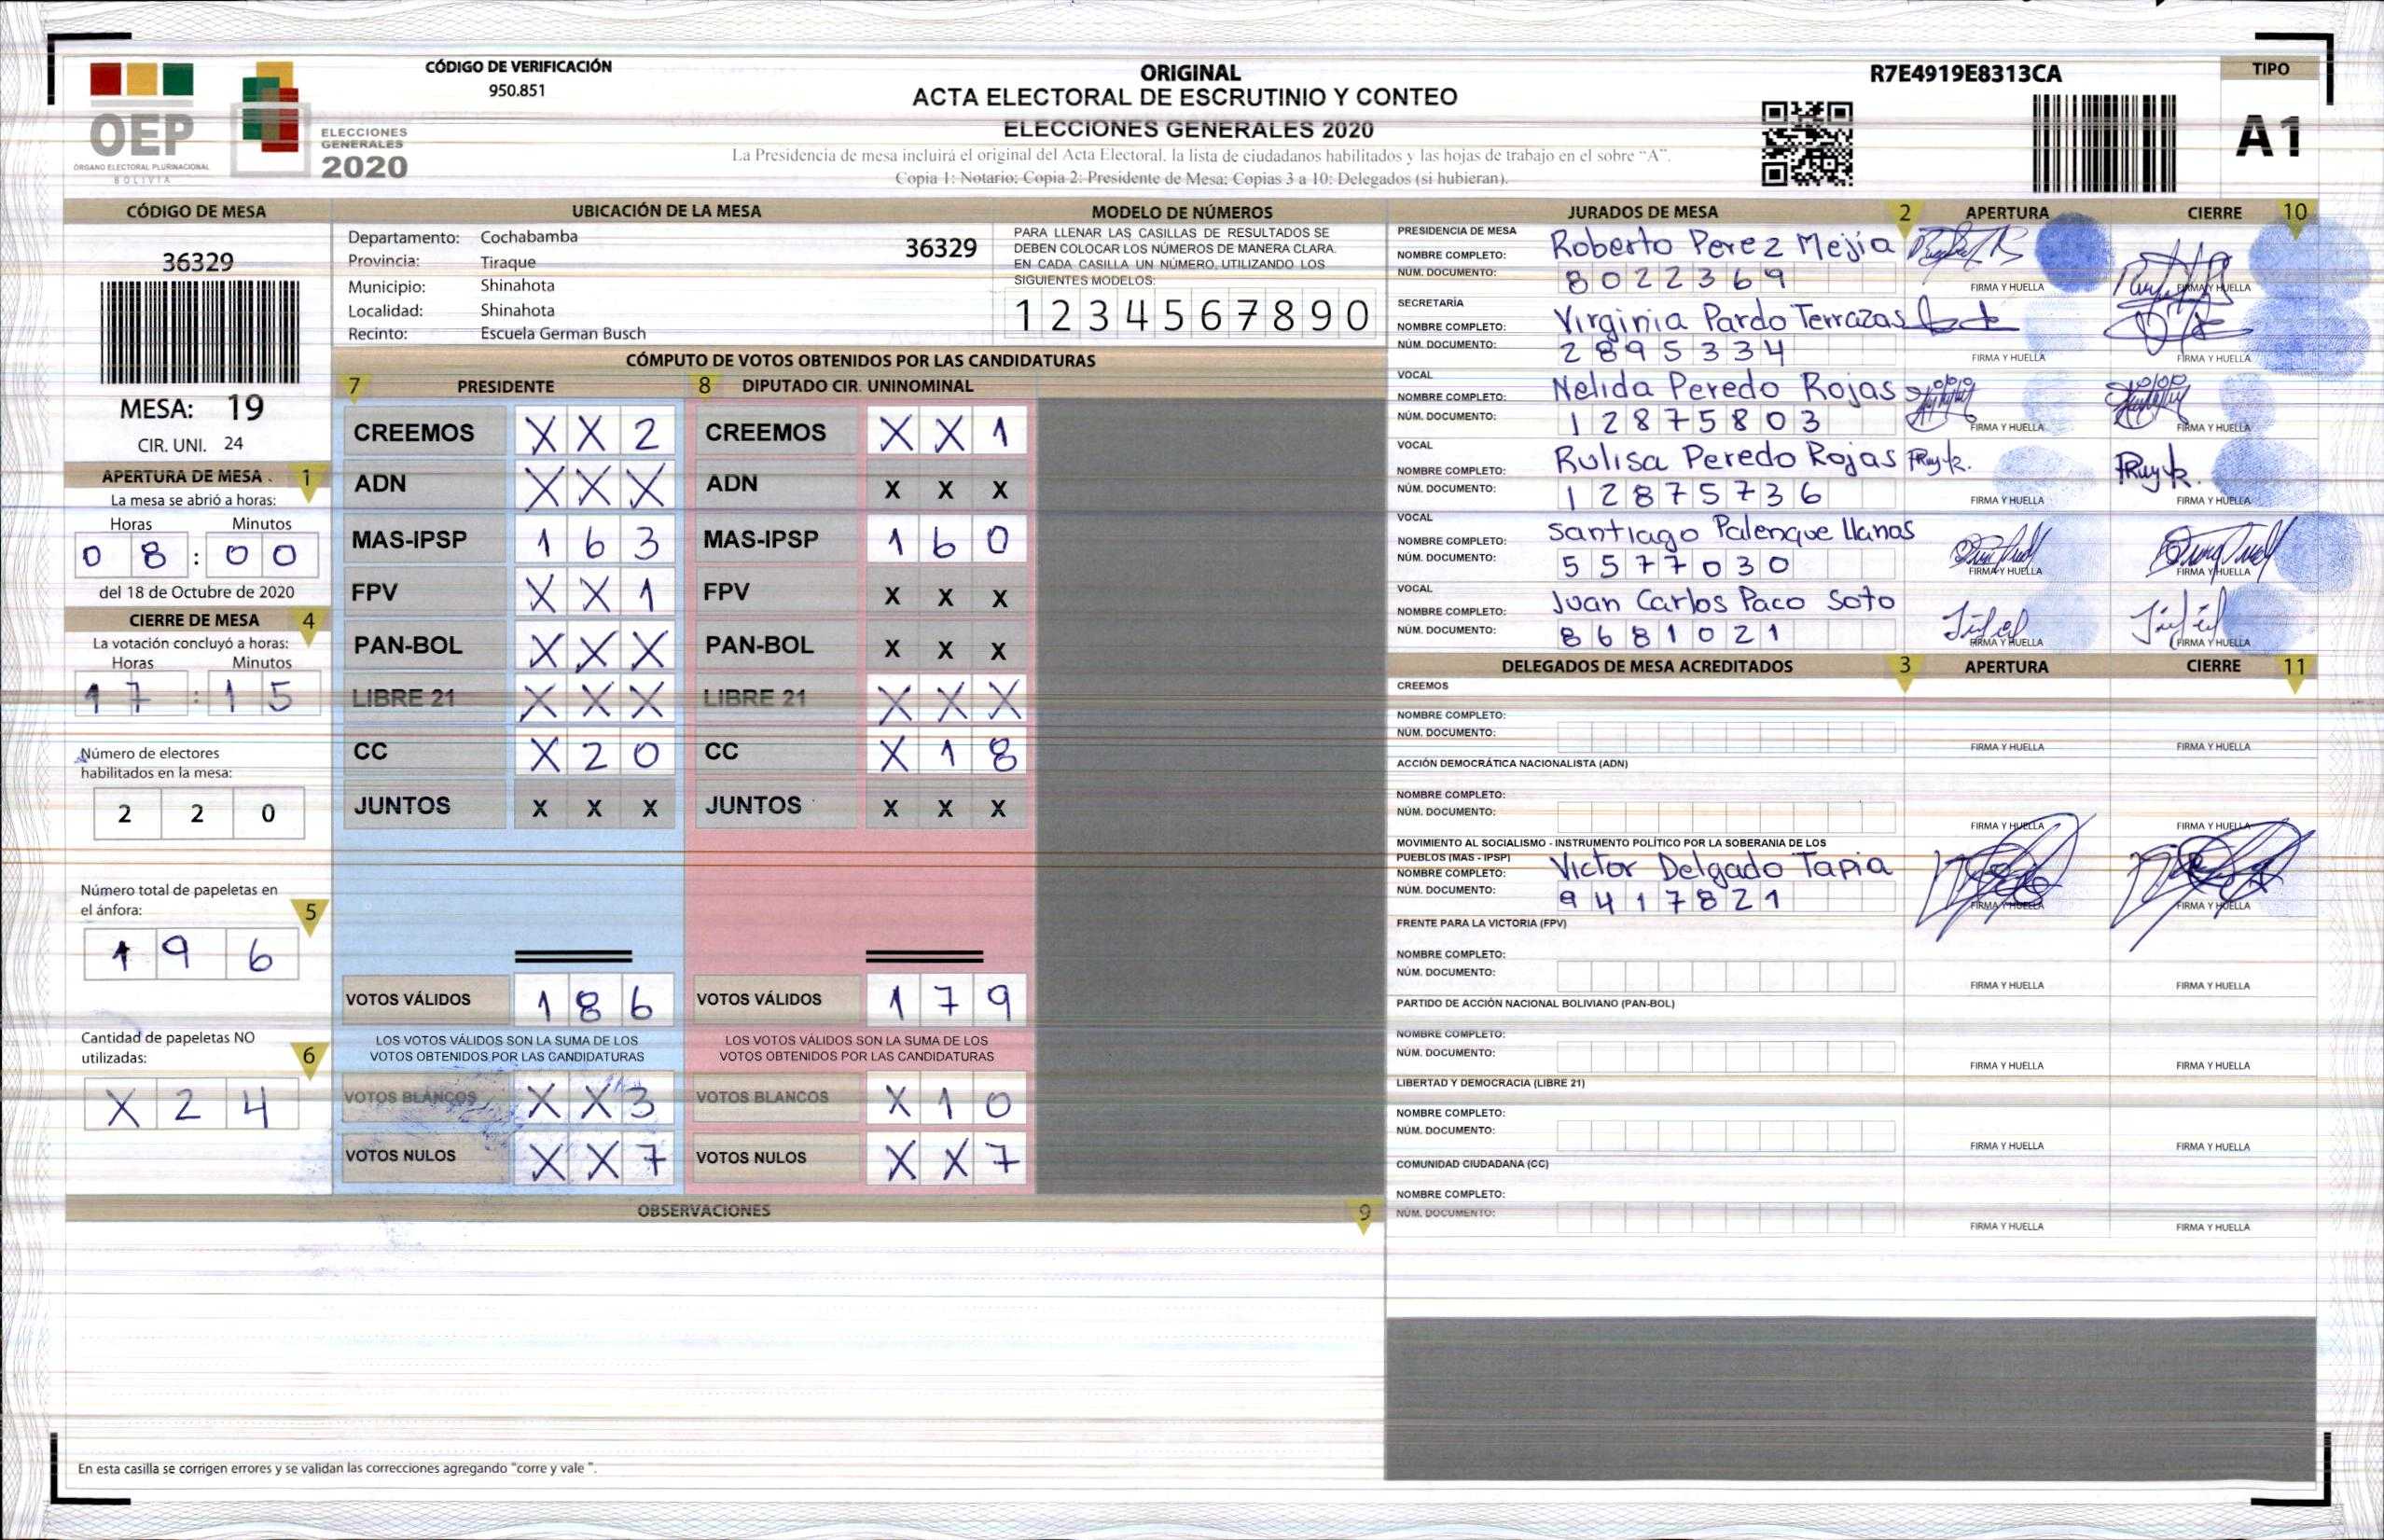 OEP
ÓRGANO ELECTORAL PLURINACIONAL
BOLIVIA
ELECCIONES
GENERALES
2020
CÓDIGO DE VERIFICACIÓN
950.851
ORIGINAL
ACTA ELECTORAL DE ESCRUTINIO Y CONTEO
ELECCIONES GENERALES 2020
La Presidencia de mesa incluirá el original del Acta Electoral, la lista de ciudadanos habilitados y las hojas de trabajo en el sobre "A".
Copia 1: Notario; Copia 2: Presidente de Mesa; Copias 3 a 10: Delegados (si hubieran).
R7E4919E8313CA
TIPO
A1
CÓDIGO DE MESA
36329
MESA: 19
CIR. UNI. 24
APERTURA DE MESA 1
La mesa se abrió a horas:
Horas Minutos
0 8 : 0 0
del 18 de Octubre de 2020
CIERRE DE MESA 4
La votación concluyó a horas:
Horas Minutos
1 7 : 1 5
Número de electores
habilitados en la mesa:
2 2 0
Número total de papeletas en
el ánfora: 5
1 9 6
Cantidad de papeletas NO
utilizadas: 6
X 2 4
UBICACIÓN DE LA MESA
Departamento: Cochabamba
Provincia: Tiraque
Municipio: Shinahota
Localidad: Shinahota
Recinto: Escuela German Busch
36329
MODELO DE NÚMEROS
PARA LLENAR LAS CASILLAS DE RESULTADOS SE
DEBEN COLOCAR LOS NÚMEROS DE MANERA CLARA.
EN CADA CASILLA UN NÚMERO, UTILIZANDO LOS
SIGUIENTES MODELOS:
1 2 3 4 5 6 7 8 9 0
CÓMPUTO DE VOTOS OBTENIDOS POR LAS CANDIDATURAS
7 PRESIDENTE 8 DIPUTADO CIR. UNINOMINAL
CREEMOS X X 2 CREEMOS X X 1
ADN X X X ADN X X X
MAS-IPSP 1 6 3 MAS-IPSP 1 6 0
FPV X X 1 FPV X X X
PAN-BOL X X X PAN-BOL X X X
LIBRE 21 X X X LIBRE 21 X X X
CC X 2 0 CC X 1 8
JUNTOS X X X JUNTOS X X X
VOTOS VÁLIDOS 1 8 6 VOTOS VÁLIDOS 1 7 9
LOS VOTOS VÁLIDOS SON LA SUMA DE LOS LOS VOTOS VÁLIDOS SON LA SUMA DE LOS
VOTOS OBTENIDOS POR LAS CANDIDATURAS VOTOS OBTENIDOS POR LAS CANDIDATURAS
VOTOS BLANCOS X X 3 VOTOS BLANCOS X 1 0
VOTOS NULOS X X 7 VOTOS NULOS X X 7
OBSERVACIONES 9
En esta casilla se corrigen errores y se validan las correcciones agregando "corre y vale ".
JURADOS DE MESA 2 APERTURA CIERRE 10
PRESIDENCIA DE MESA
NOMBRE COMPLETO: Roberto Perez Mejía
NÚM. DOCUMENTO: 8022369 FIRMA Y HUELLA FIRMA Y HUELLA
SECRETARÍA
NOMBRE COMPLETO: Virginia Pardo Terrazas
NÚM. DOCUMENTO: 2895334 FIRMA Y HUELLA FIRMA Y HUELLA
VOCAL
NOMBRE COMPLETO: Nelida Peredo Rojas
NÚM. DOCUMENTO: 12875803 FIRMA Y HUELLA FIRMA Y HUELLA
VOCAL
NOMBRE COMPLETO: Rulisa Peredo Rojas
NÚM. DOCUMENTO: 12875736 FIRMA Y HUELLA FIRMA Y HUELLA
VOCAL
NOMBRE COMPLETO: Santiago Palenque llanos
NÚM. DOCUMENTO: 5577030 FIRMA Y HUELLA FIRMA Y HUELLA
VOCAL
NOMBRE COMPLETO: Juan Carlos Paco Soto
NÚM. DOCUMENTO: 8681021 FIRMA Y HUELLA FIRMA Y HUELLA
DELEGADOS DE MESA ACREDITADOS 3 APERTURA CIERRE 11
CREEMOS
NOMBRE COMPLETO:
NÚM. DOCUMENTO: FIRMA Y HUELLA FIRMA Y HUELLA
ACCIÓN DEMOCRÁTICA NACIONALISTA (ADN)
NOMBRE COMPLETO:
NÚM. DOCUMENTO: FIRMA Y HUELLA FIRMA Y HUELLA
MOVIMIENTO AL SOCIALISMO - INSTRUMENTO POLÍTICO POR LA SOBERANIA DE LOS
PUEBLOS (MAS - IPSP)
NOMBRE COMPLETO: Victor Delgado Tapia
NÚM. DOCUMENTO: 9417821 FIRMA Y HUELLA FIRMA Y HUELLA
FRENTE PARA LA VICTORIA (FPV)
NOMBRE COMPLETO:
NÚM. DOCUMENTO: FIRMA Y HUELLA FIRMA Y HUELLA
PARTIDO DE ACCIÓN NACIONAL BOLIVIANO (PAN-BOL)
NOMBRE COMPLETO:
NÚM. DOCUMENTO: FIRMA Y HUELLA FIRMA Y HUELLA
LIBERTAD Y DEMOCRACIA (LIBRE 21)
NOMBRE COMPLETO:
NÚM. DOCUMENTO: FIRMA Y HUELLA FIRMA Y HUELLA
COMUNIDAD CIUDADANA (CC)
NOMBRE COMPLETO:
NÚM. DOCUMENTO: FIRMA Y HUELLA FIRMA Y HUELLA